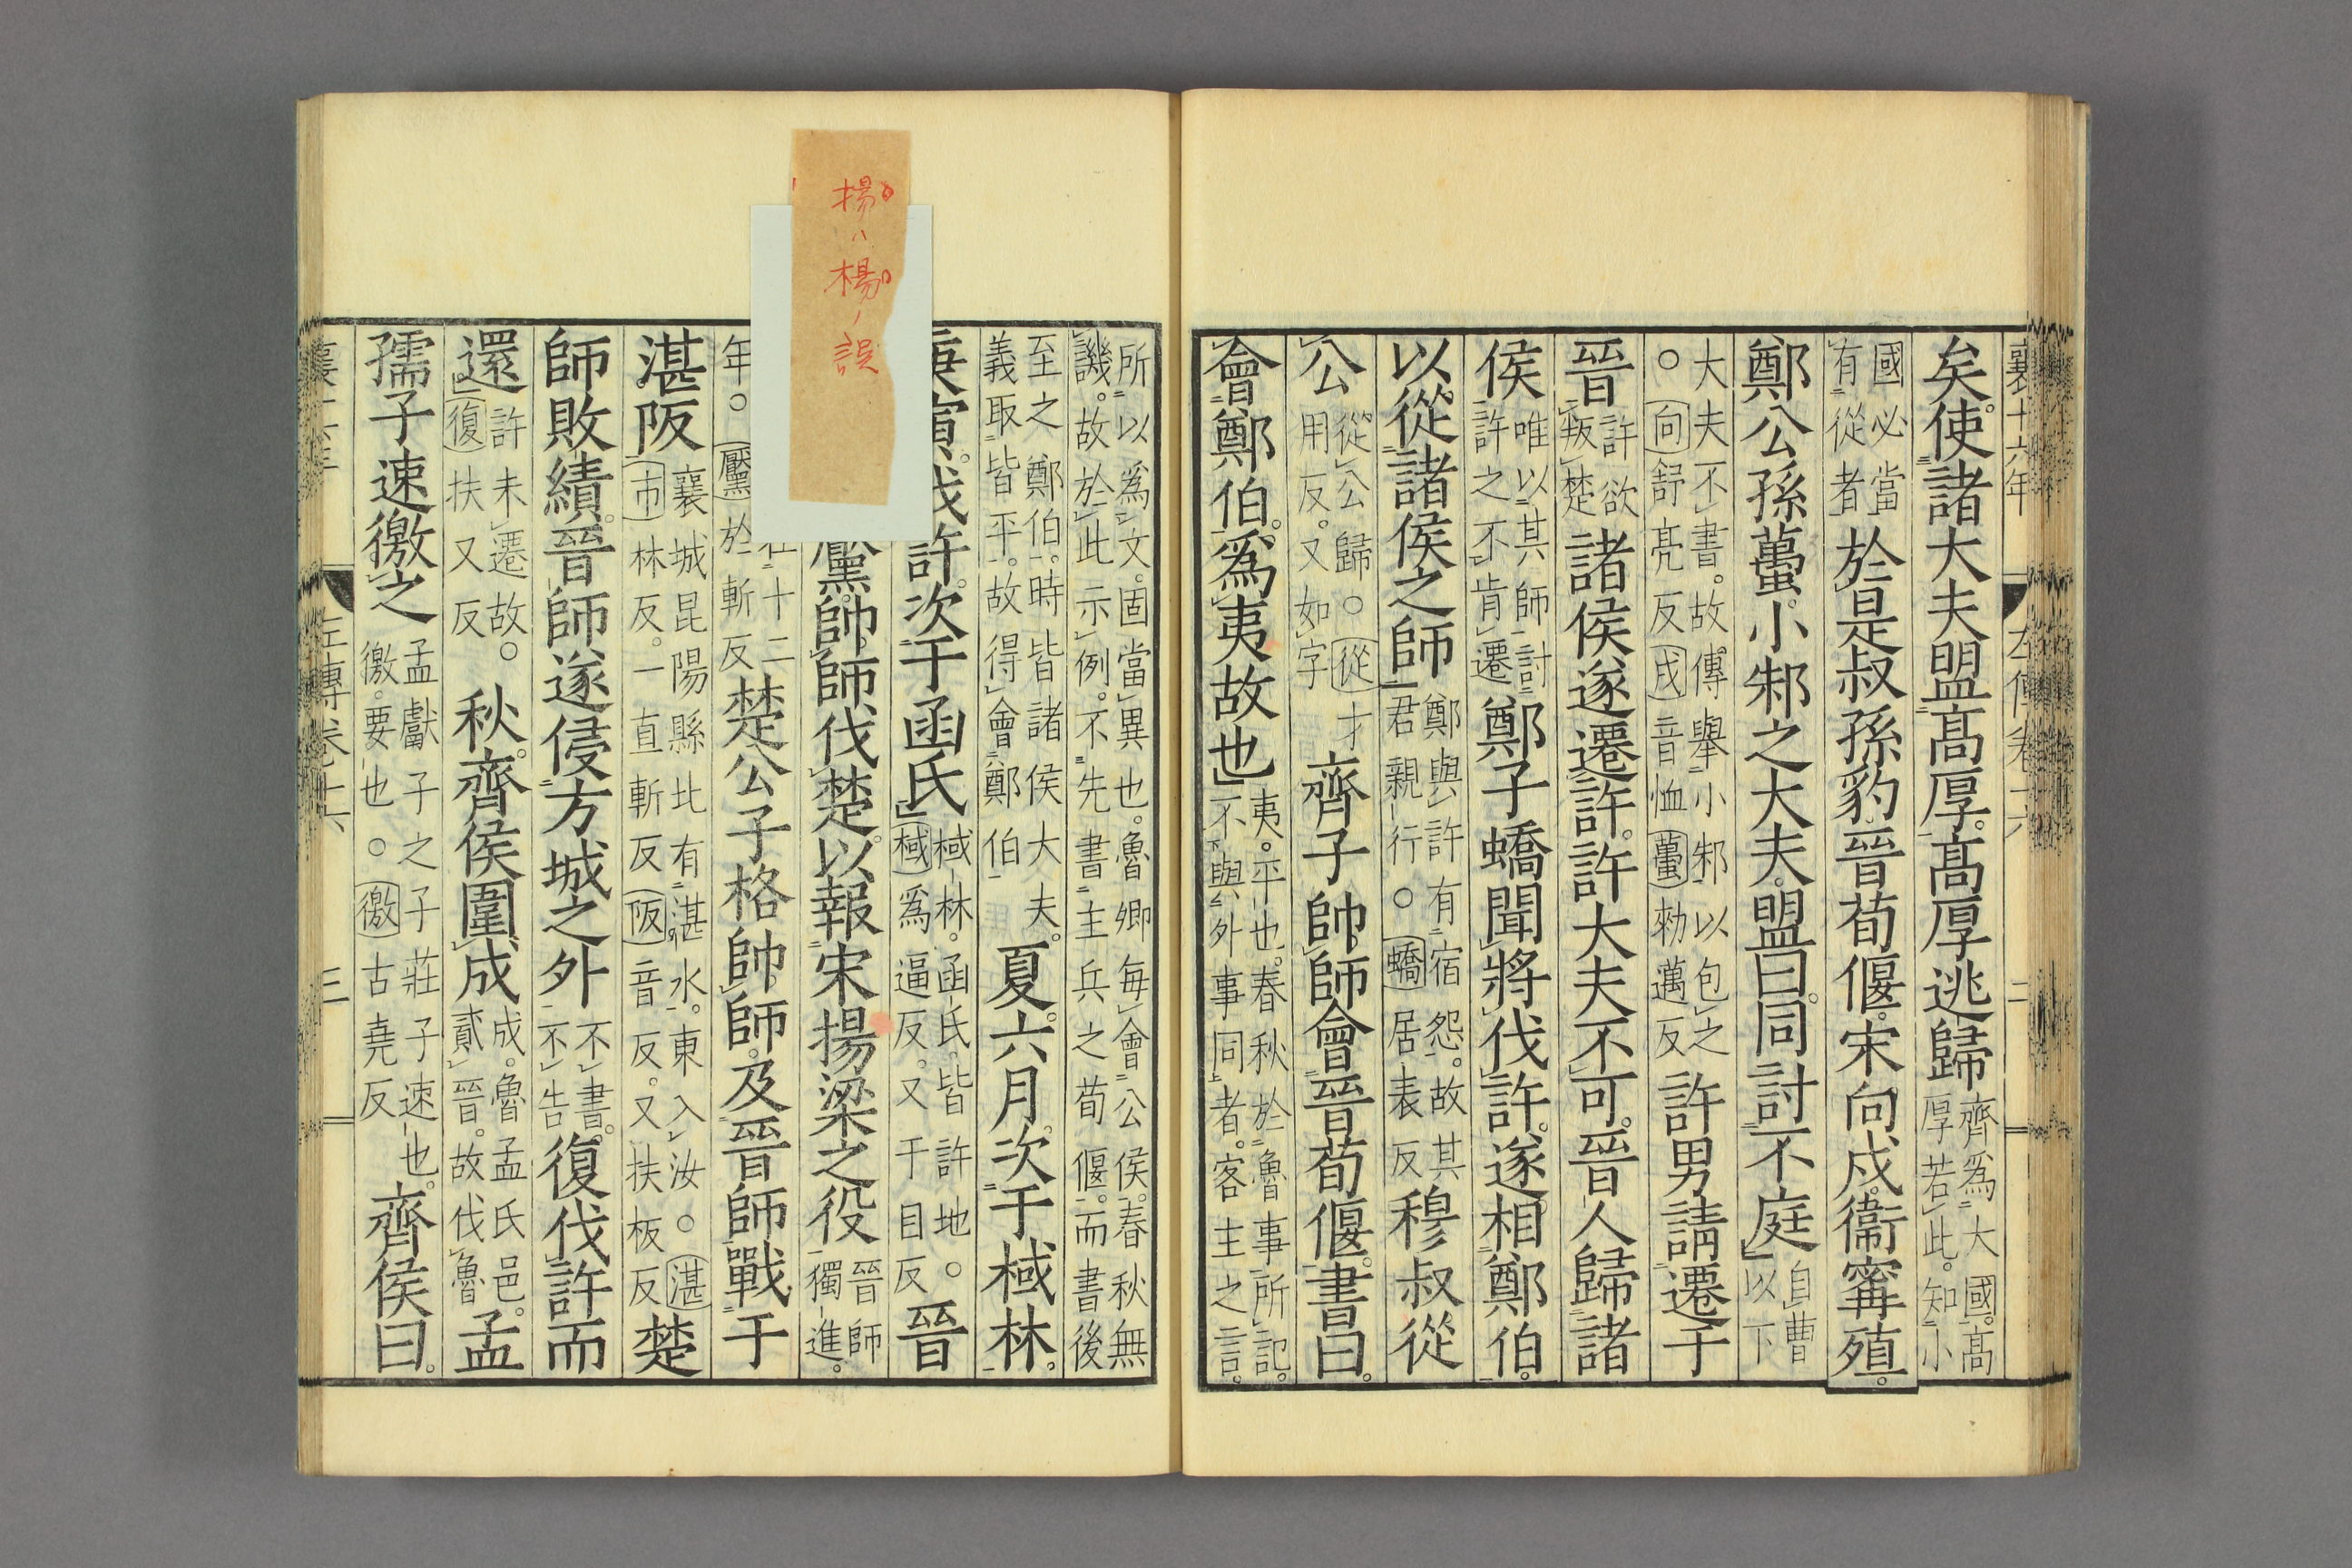 襄十六年
左傳卷十六
二
矣使諸大夫盟高厚高厚逃歸齊爲大國高
厚若此知小
國必當
有從者於是叔孫豹晉荀偃宋向戍衞甯殖
鄭公孫蠆小邾之大夫盟曰同討不庭自曹
以下
大夫不書故傳舉小邾以包之
○向舒亮反戍音恤蠆勑邁反許男請遷于
晉許欲
叛楚諸侯遂遷許許大夫不可晉人歸諸
侯唯以其師討
許之不肯遷鄭子蟜聞將伐許遂相鄭伯
以從諸侯之師鄭與許有宿怨故其
君親行○蟜居表反穆叔從
公從公歸○從才
用反又如字齊子帥師會晉荀偃書曰
會鄭伯爲夷故也夷平也春秋於魯事所記
不與外事同者客主之言
所以爲文固當異也魯卿每會公侯春秋無
譏故於此示例不先書主兵之荀偃而書後
至之鄭伯時皆諸侯大夫
義取皆平故得會鄭伯夏六月次于棫林
庚寅伐許次于函氏棫林函氏皆許地○
棫爲逼反又于目反晉
黶帥師伐楚以報宋揚梁之役晉師
獨進
十二
年○黶於斬反楚公子格帥師及晉師戰于
湛阪襄城昆陽縣北有湛水東入汝○湛
市林反一直斬反阪音反又扶板反楚
師敗績晉師遂侵方城之外不書
不告復伐許而
還許未遷故○
復扶又反秋齊侯圍成成魯孟氏邑
貳晉故伐魯孟
孺子速徼之孟獻子之子莊子速也
徼要也○徼古堯反齊侯曰
左傳卷十六
三
揚ハ
楊ノ誤